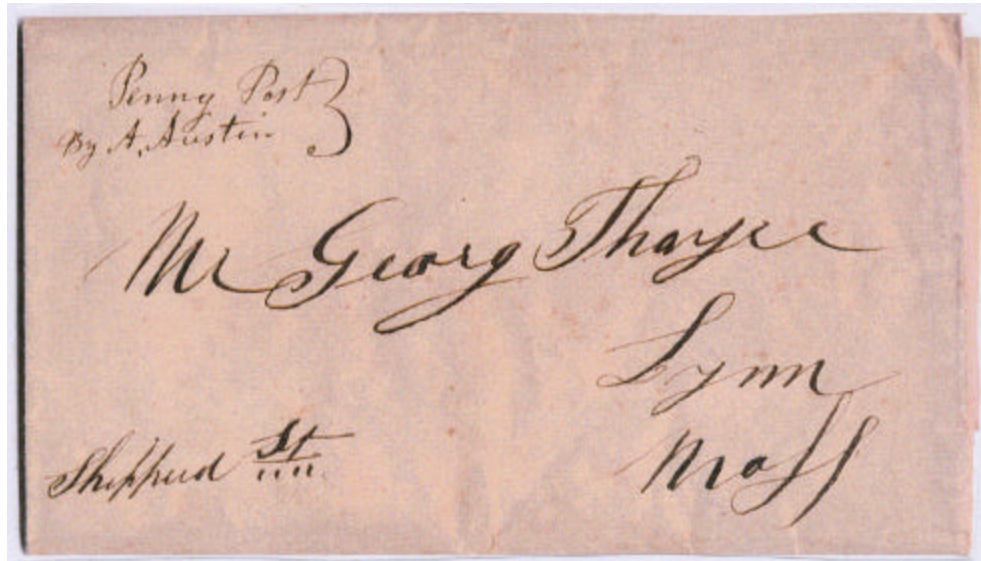 Penny Post
By A. Austin
Mr Georg Thayer
Lynn
Mass
Shepperd St